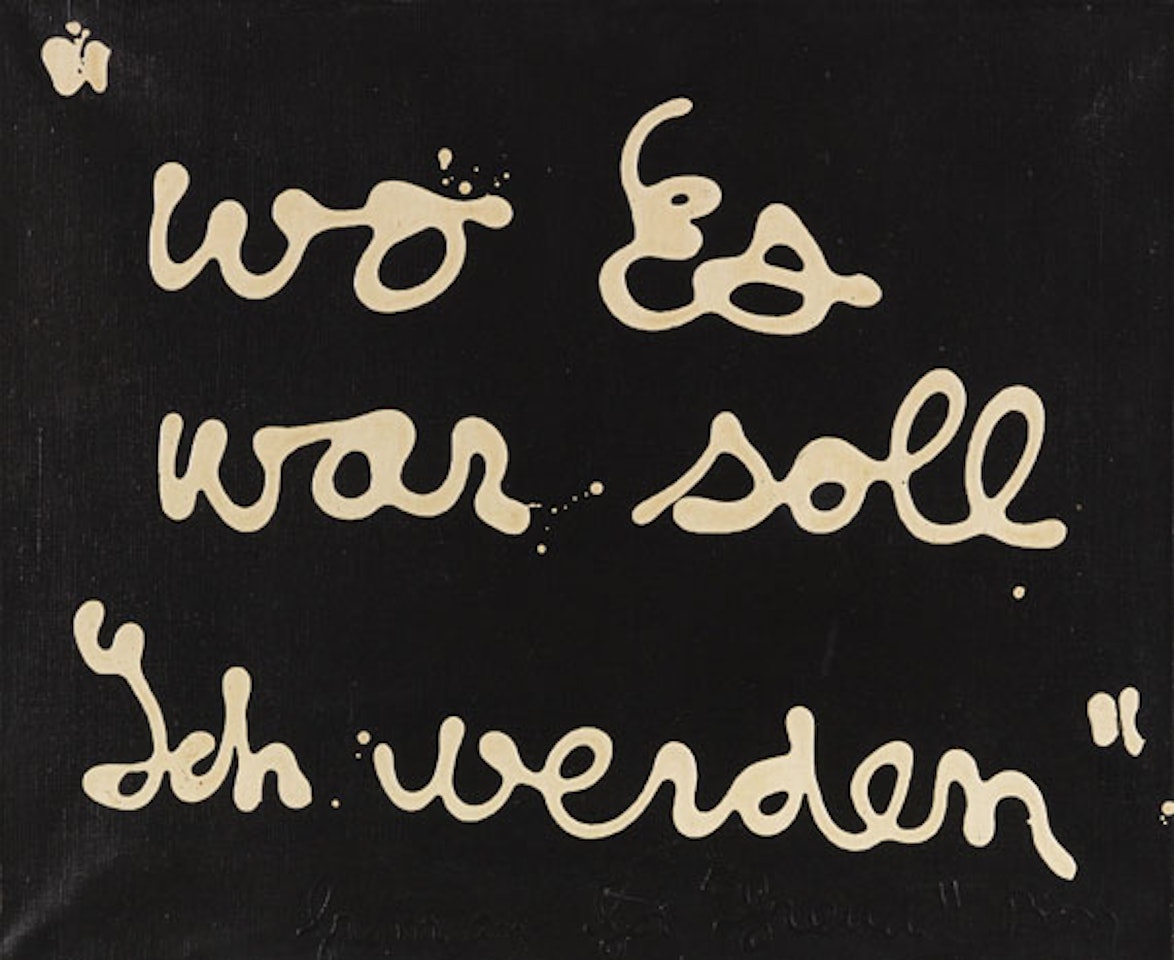 "wo Es
war soll
Ich werden"